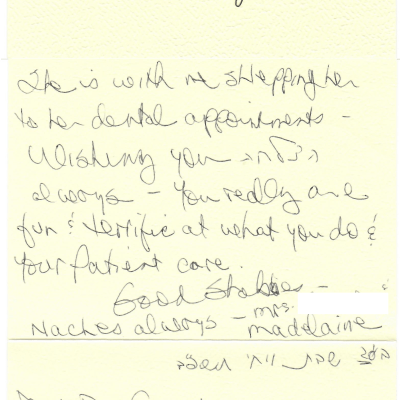 She is with me shlepping her
to her dental appointments -
Wishing you הצלחה
always - You really are
fun & terrific at what you do &
your patient care.
Good Shabbos - &
mrs.
Naches always - madelaine
שבת ויחי